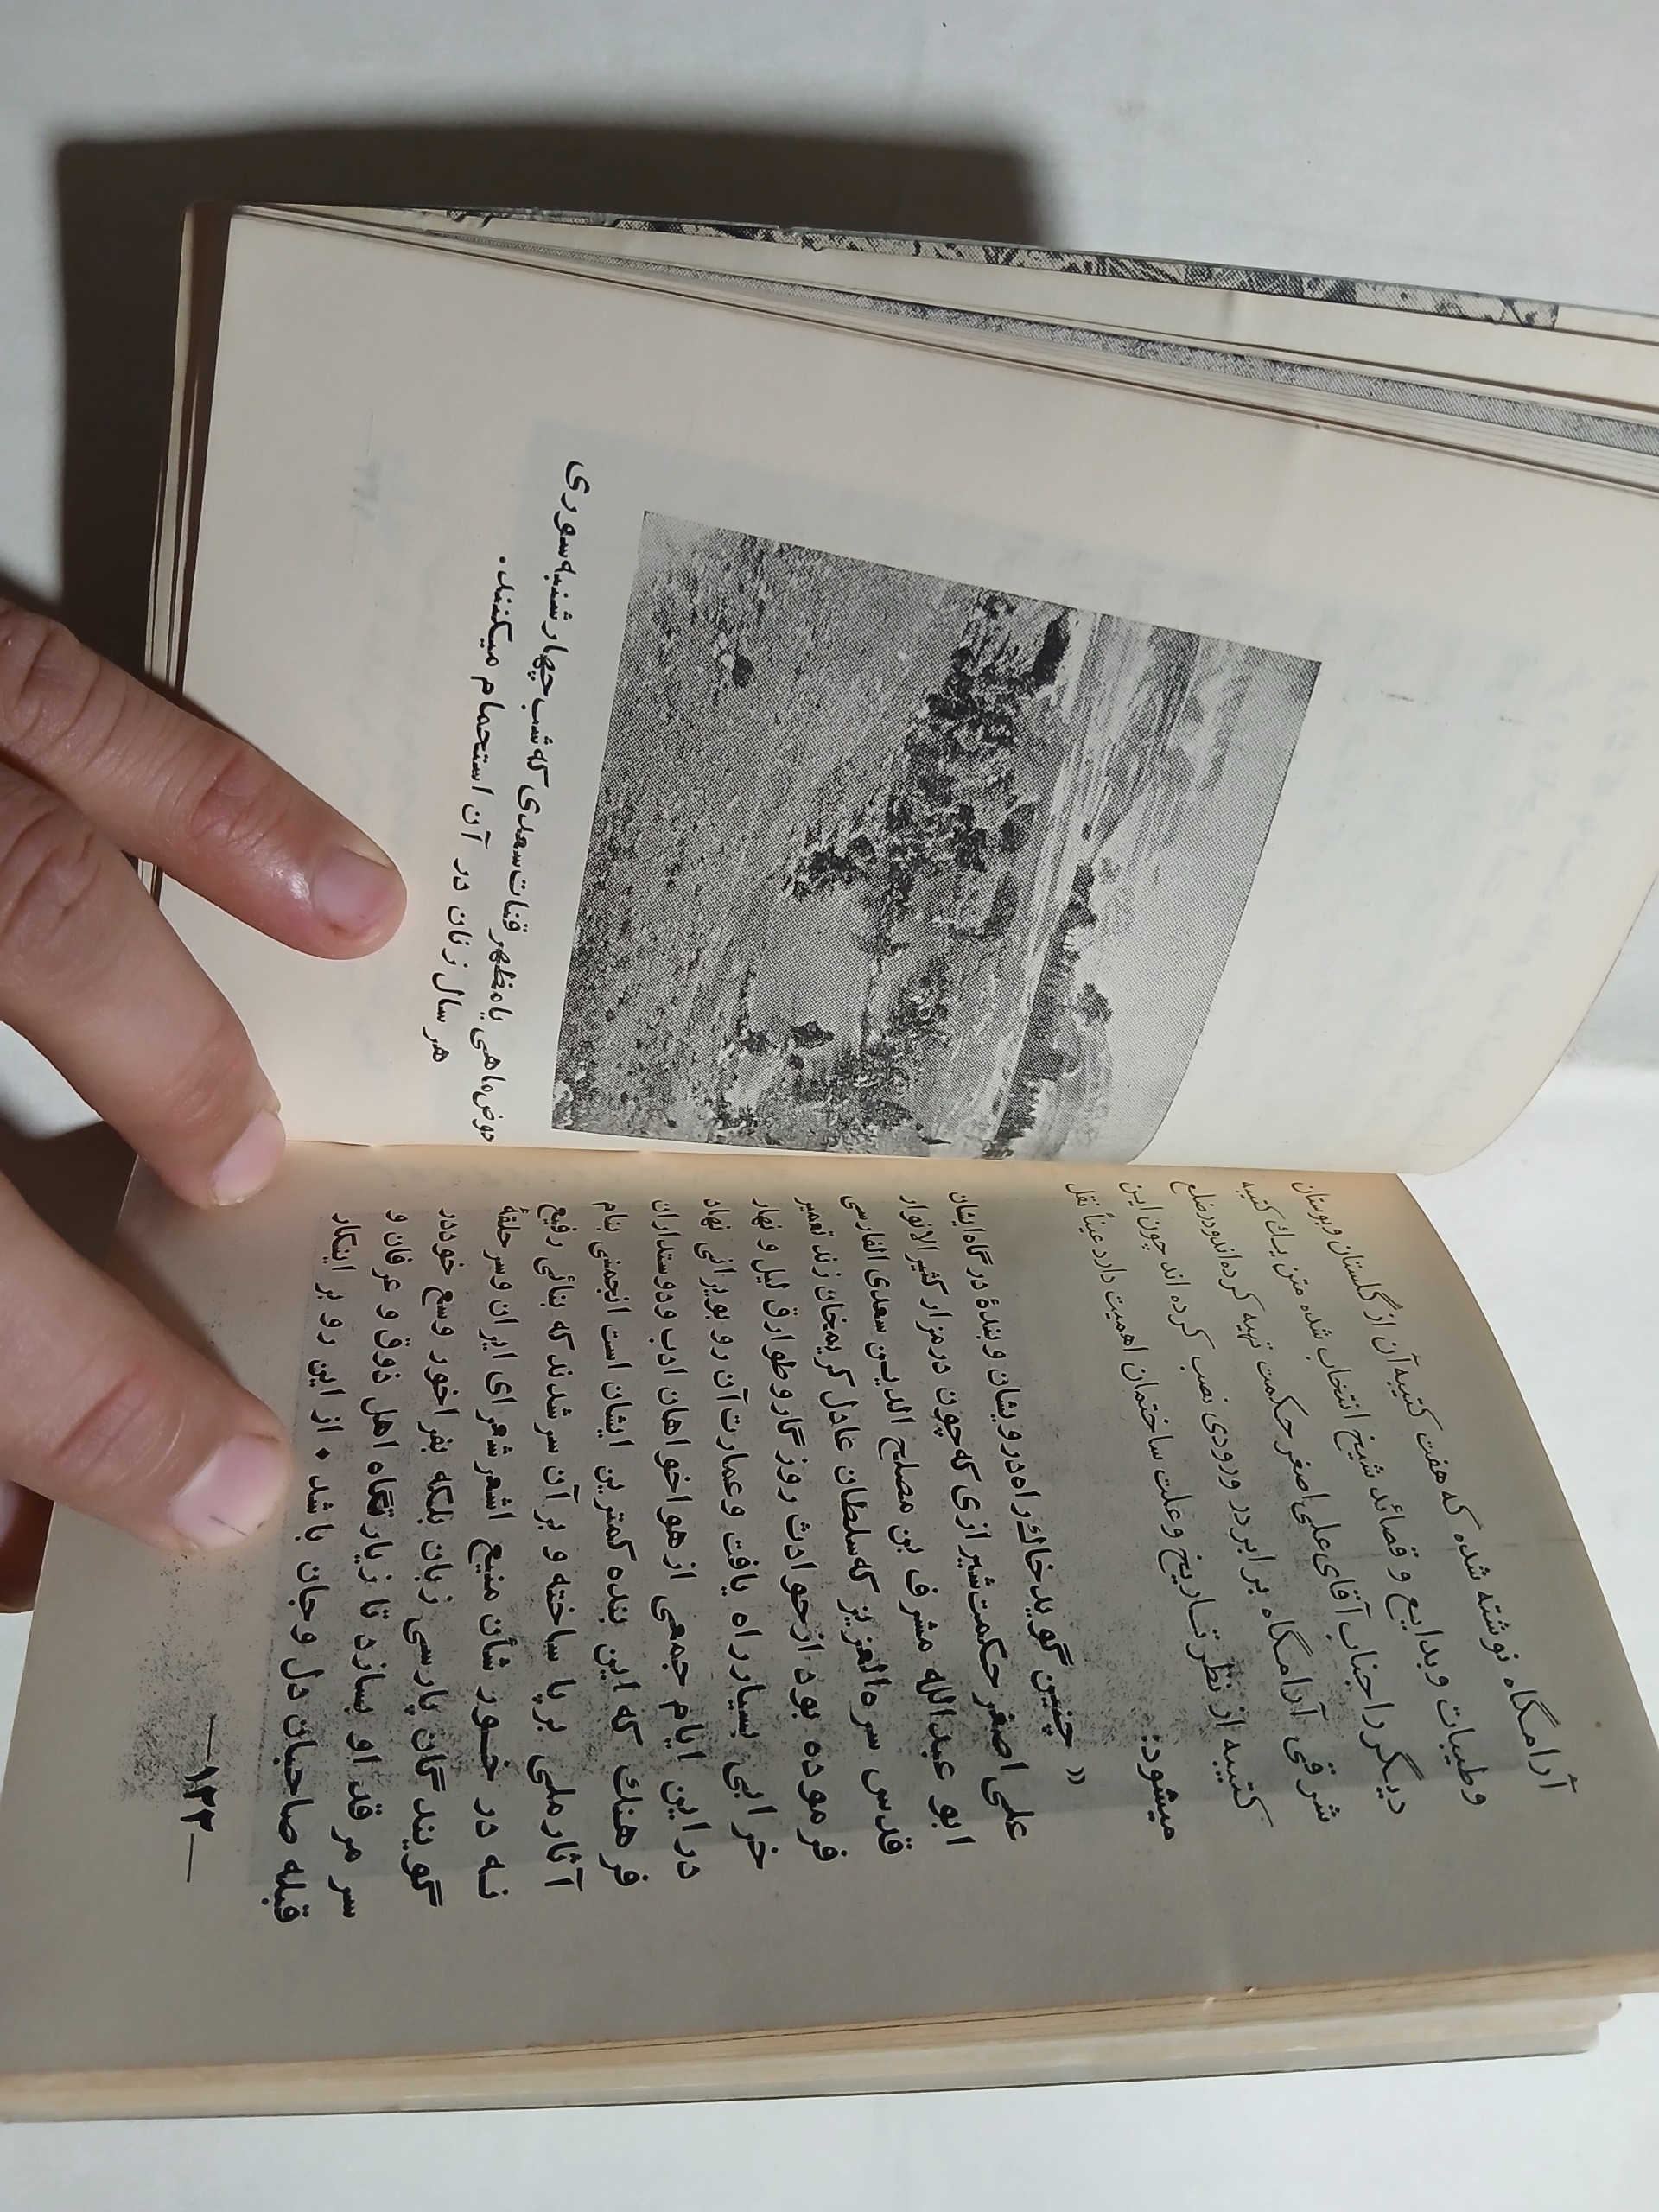 آرامگاه نوشته شده که هفت کتیبه آن از گلستان و بوستان
وطیبات و بدایع و قصائد شیخ انتخاب شده متن یك کتیبه
دیگر را جناب آقای علی اصغر حکمت تهیه کرده اند و در ضلع
شرقی آرامگاه برابر در ورودی نصب کرده اند چون این
کتیبه از نظر تاریخ و علت ساختمان اهمیت دارد عیناً نقل
میشود:
« چنین گوید خاك راه درویشان و بندهٔ درگاه ایشان
علی اصغر حکمت شیرازی که چون در مزار کثیر الانوار
ابو عبدالله مشرف بن مصلح الدین سعدی الفارسی
قدس سره العزیز که سلطان عادل کریمخان زند تعمیر
فرموده بود از حوادث روزگار و طوارق لیل و نهار
خرابی بسیار راه یافت و عمارت آن رو بویرانی نهاد
در این ایام جمعی از هواخواهان ادب و دوستداران
فرهنك که این بنده کمترین ایشان است انجمنی بنام
آثار ملی برپا ساخته و بر آن سر شدند که بنائی رفیع
نه در خور شأن منیع اشعر شعرای ایران و سر حلقهٔ
گویندگان پارسی زبان بلکه بفراخور وسع خود در
سر مرقد او بسازد تا زیارتگاه اهل ذوق و عرفان و
قبله صاحبان دل و جان باشد . از این رو بر اینکار
—۱۲۲—
حوض ماهی یا مظهر قنات سعدی که شب چهارشنبه سوری
هر سال زنان در آن استحمام میکنند.